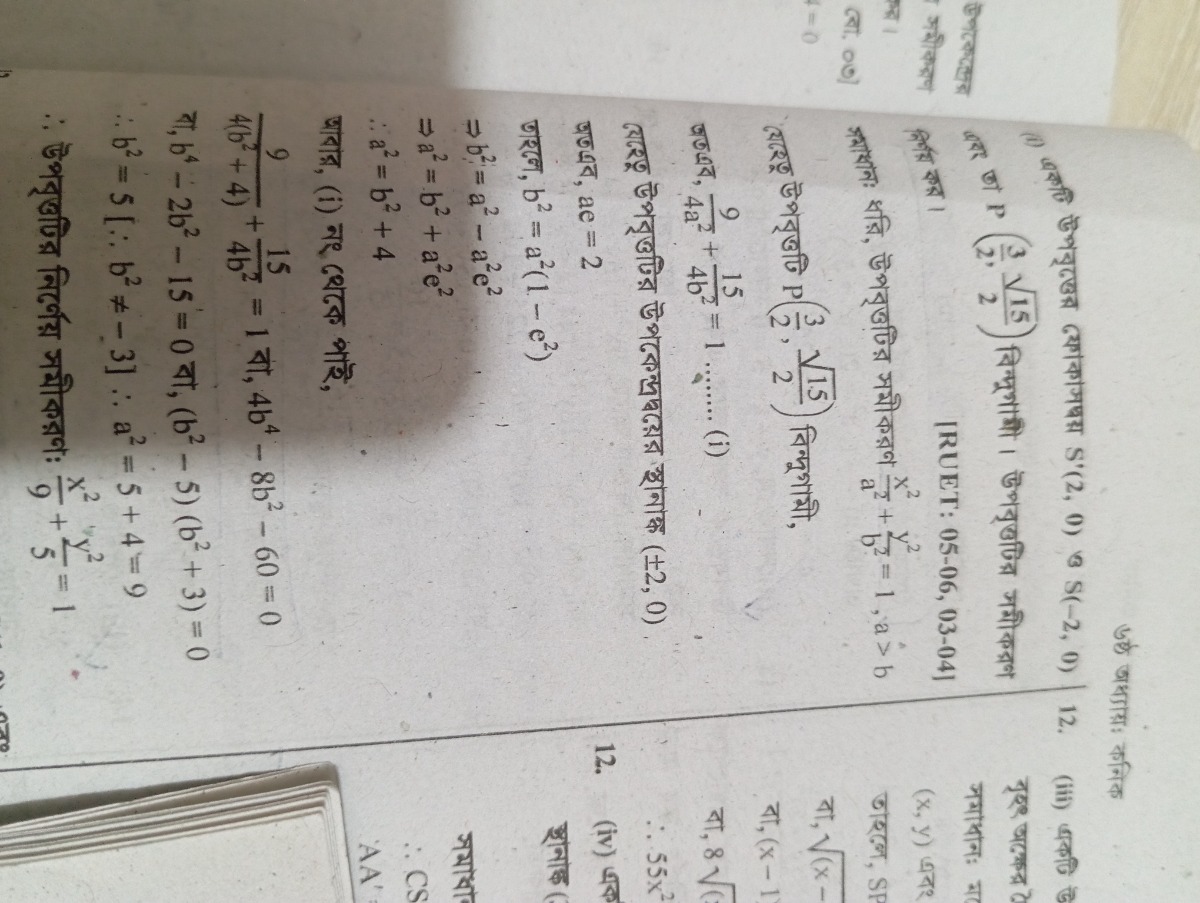 ৬ষ্ঠ অধ্যায়ঃ কনিক
উপকেন্দ্রের
সমীকরণ
বো. ০৩]
= 0
(i) একটি উপবৃত্তের ফোকাসদ্বয় S'(2, 0) ও S(−2, 0)
এবং তা P (3/2, √15/2) বিন্দুগামী। উপবৃত্তটির সমীকরণ
নির্ণয় কর।
[RUET: 05-06, 03-04]
সমাধানঃ ধরি, উপবৃত্তটির সমীকরণ x²/a² + y²/b² = 1, a > b
যেহেতু উপবৃত্তটি P(3/2, √15/2) বিন্দুগামী,
অতএব, 9/4a² + 15/4b² = 1 ........ (i)
যেহেতু উপবৃত্তটির উপকেন্দ্রদ্বয়ের স্থানাঙ্ক (±2, 0)
অতএব, ae = 2
তাহলে, b² = a²(1 − e²)
⇒ b² = a² − a²e²
⇒ a² = b² + a²e²
∴ a² = b² + 4
আবার, (i) নং থেকে পাই,
9/4(b² + 4) + 15/4b² = 1 বা, 4b⁴ − 8b² − 60 = 0
বা, b⁴ − 2b² − 15 = 0 বা, (b² − 5) (b² + 3) = 0
∴ b² = 5 [∵ b² ≠ − 3] ∴ a² = 5 + 4 = 9
∴ উপবৃত্তটির নির্ণেয় সমীকরণঃ x²/9 + y²/5 = 1
12. (iii) একটি উ
বৃহৎ অক্ষের দৈ
সমাধানঃ
(x, y) এবং
তাহলে, SP
বা, √(x −
বা, (x − 1
বা, 8 √(
∴ 55x²
12. (iv) এক
স্থানাঙ্ক (
সমাধান
∴ CS
AA' =